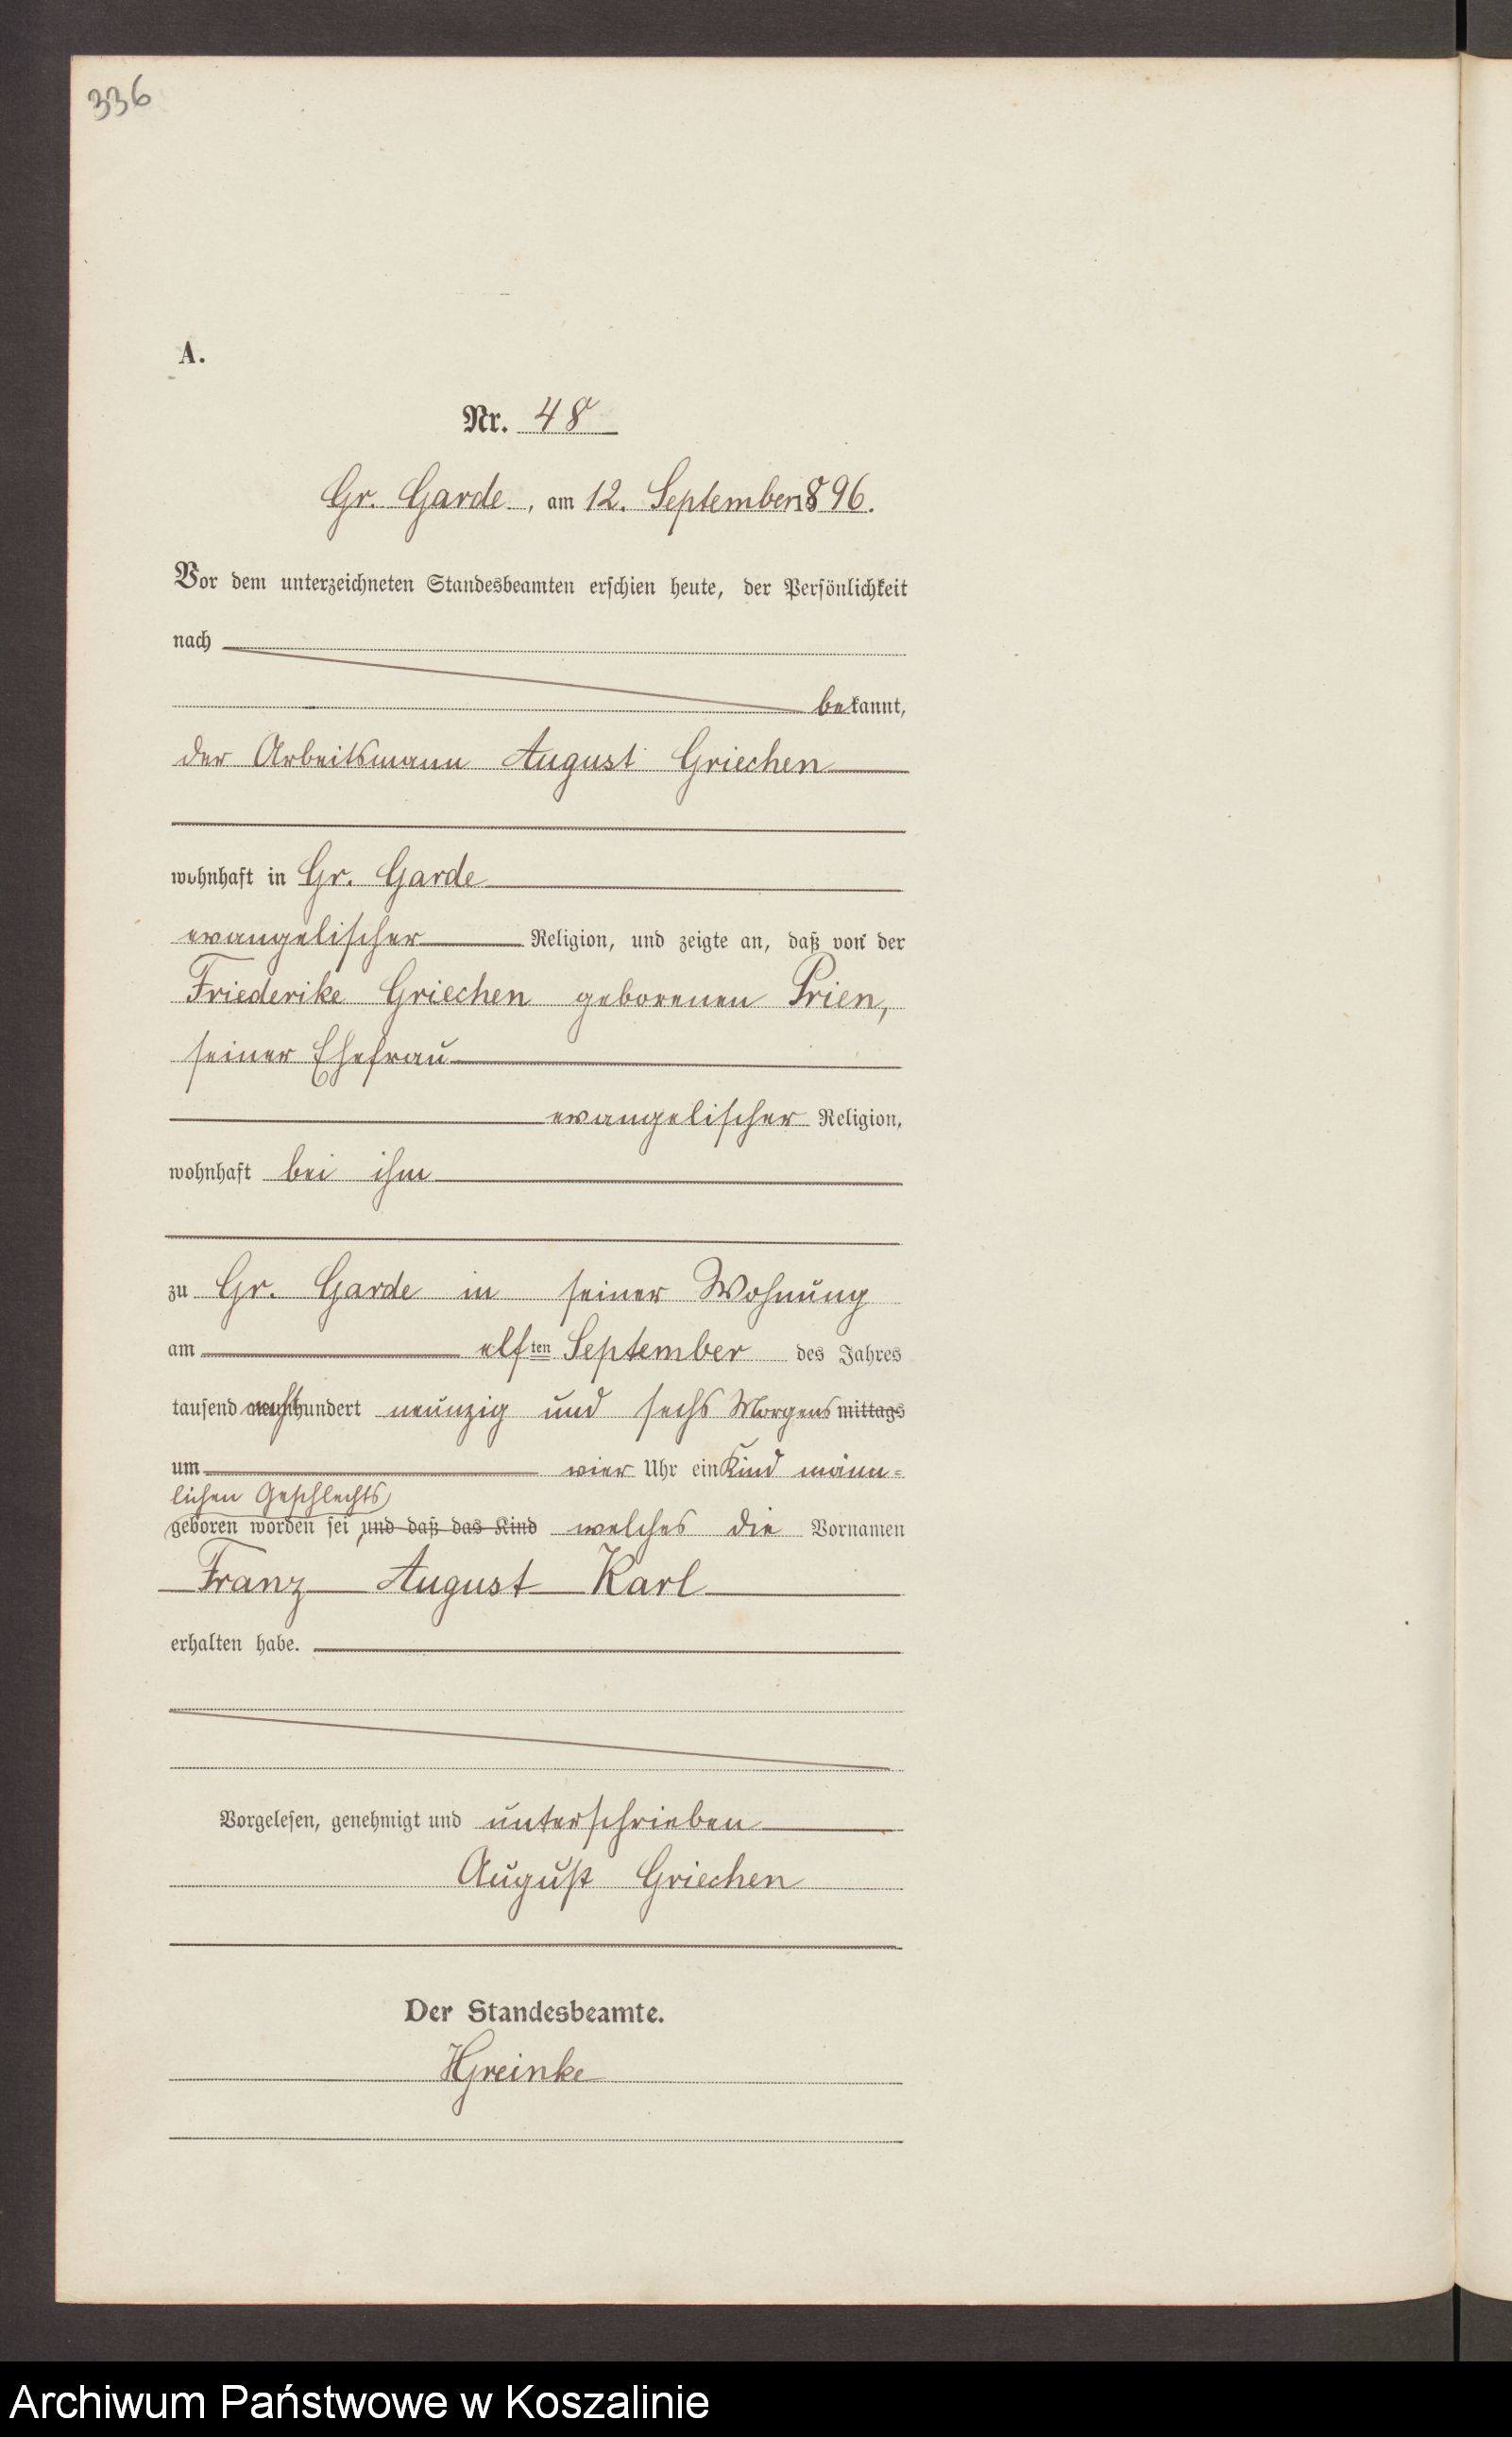 336
A.
Nr. 48
Gr. Garde, am 12. September 1896.
Vor dem unterzeichneten Standesbeamten erschien heute, der Persönlichkeit
nach
bekannt,
der Arbeitsmann August Griechen
wohnhaft in Gr. Garde
evangelischer Religion, und zeigte an, daß von der
Friederike Griechen geborenen Prien,
seiner Ehefrau
evangelischer Religion,
wohnhaft bei ihm
zu Gr. Garde in seiner Wohnung
am elften September des Jahres
tausend achthundert neunzig und sechs Morgens mittags
um vier Uhr ein Kind männ-
lichen Geschlechts
geboren worden sei, und daß das Kind welches die Vornamen
Franz August Karl
erhalten habe.
Vorgelesen, genehmigt und unterschrieben
August Griechen
Der Standesbeamte.
HGreinke
Archiwum Państwowe w Koszalinie